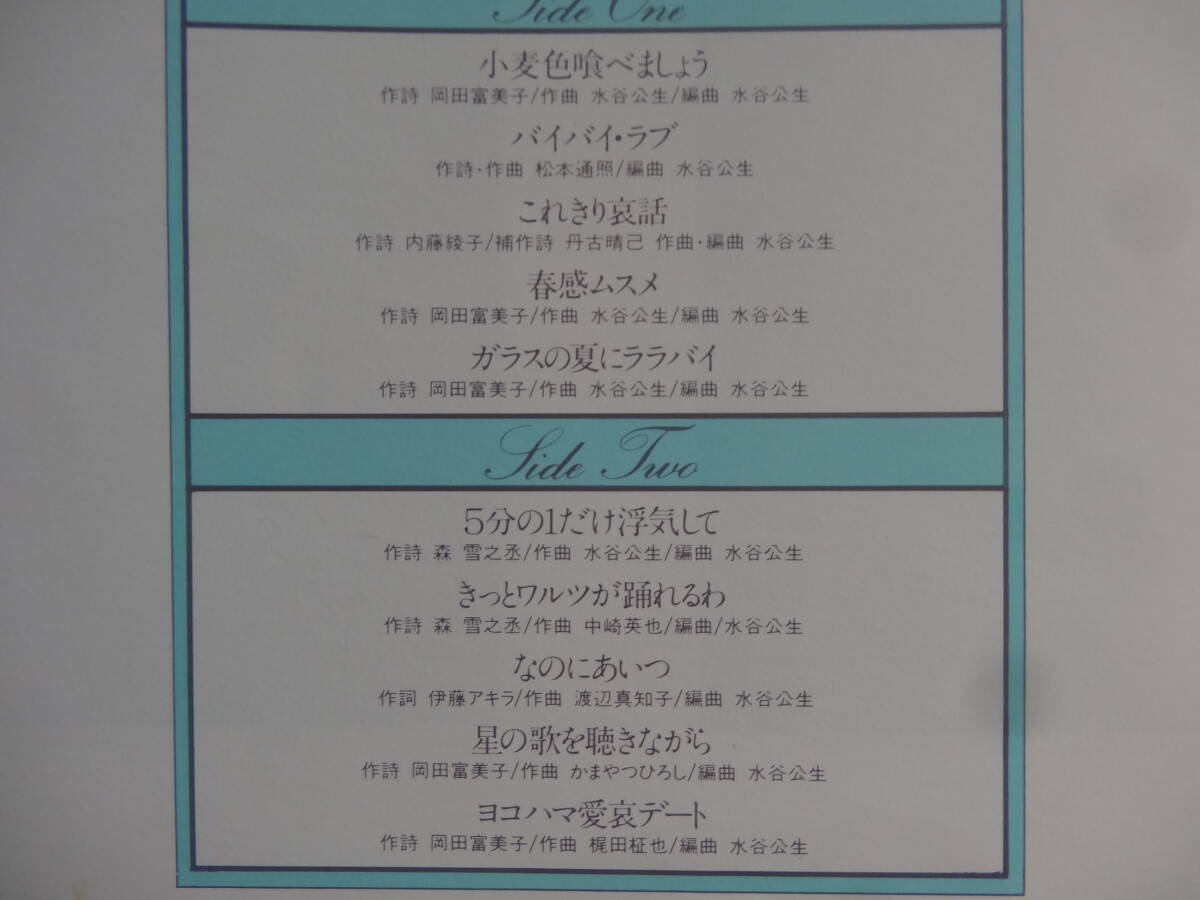 Side One
小麦色喰べましょう
作詩 岡田富美子/作曲 水谷公生/編曲 水谷公生
バイバイ・ラブ
作詩・作曲 松本通照/編曲 水谷公生
これきり哀話
作詩 内藤綾子/補作詩 丹古晴己 作曲・編曲 水谷公生
春感ムスメ
作詩 岡田富美子/作曲 水谷公生/編曲 水谷公生
ガラスの夏にララバイ
作詩 岡田富美子/作曲 水谷公生/編曲 水谷公生
Side Two
5分の1だけ浮気して
作詩 森 雪之丞/作曲 水谷公生/編曲 水谷公生
きっとワルツが踊れるわ
作詩 森 雪之丞/作曲 中崎英也/編曲/水谷公生
なのにあいつ
作詞 伊藤アキラ/作曲 渡辺真知子/編曲 水谷公生
星の歌を聴きながら
作詩 岡田富美子/作曲 かまやつひろし/編曲 水谷公生
ヨコハマ愛哀デート
作詩 岡田富美子/作曲 梶田柾也/編曲 水谷公生